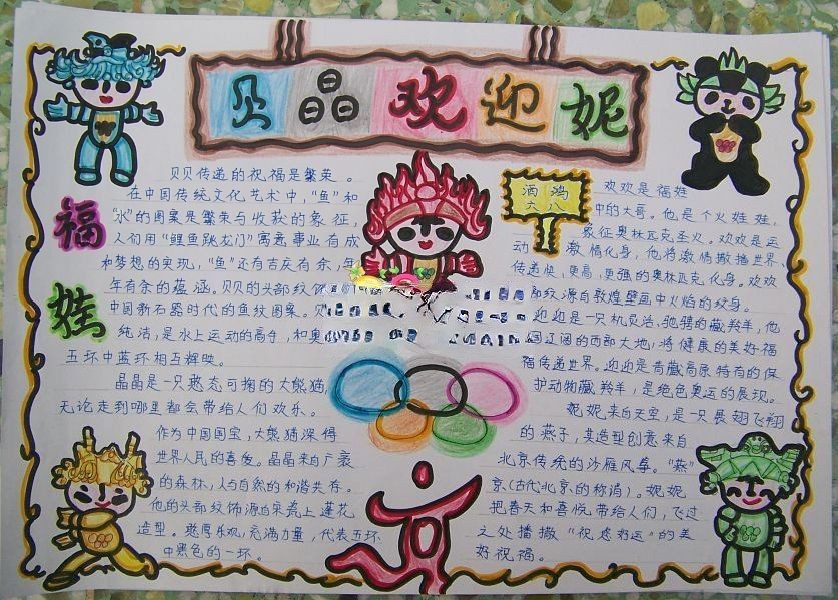 贝晶欢迎妮
福
娃
洒鸿
大八
贝贝传递的祝福是繁荣。
在中国传统文化艺术中，“鱼”和
“水”的图案是繁荣与收获的象征，
人们用“鲤鱼跳龙门”寓意事业有成
和梦想的实现，“鱼”还有吉庆有余，年
年有余的蕴涵。贝贝的头部纹饰
中国新石器时代的鱼纹图案。贝
纯洁，是水上运动的高手，和奥
五环中蓝环相互辉映。
晶晶是一只憨态可掬的大熊猫，
无论走到哪里都会带给人们欢乐。
作为中国国宝，大熊猫深得
世界人民的喜爱。晶晶来自广袤
的森林，人与自然的和谐共存。
他的头部纹饰源自宋瓷上莲花
造型。憨厚乐观，充满力量，代表五环
中黑色的一环。
欢欢是福娃
中的大哥。他是个火娃娃，
象征奥林匹克圣火。欢欢是运
动激情化身，他将激情撒播世界，
传递更快，更高，更强的奥林匹克化身。欢欢
部纹源自敦煌壁画中火焰的纹身。
迎迎是一只机灵活，驰骋的藏羚羊，他
国辽阔的西部大地，将健康的美好福
福传递世界。迎迎是青藏高原特有的保
护动物藏羚羊，是绝色奥运的展现。
妮妮来自天空，是一只展翅飞翔
的燕子，其造型创意来自
北京传统的沙雁风筝。“燕”
京（古代北京的称谓）。妮妮
把春天和喜悦带给人们，飞过
之处播撒“祝您好运”的美
好祝福。